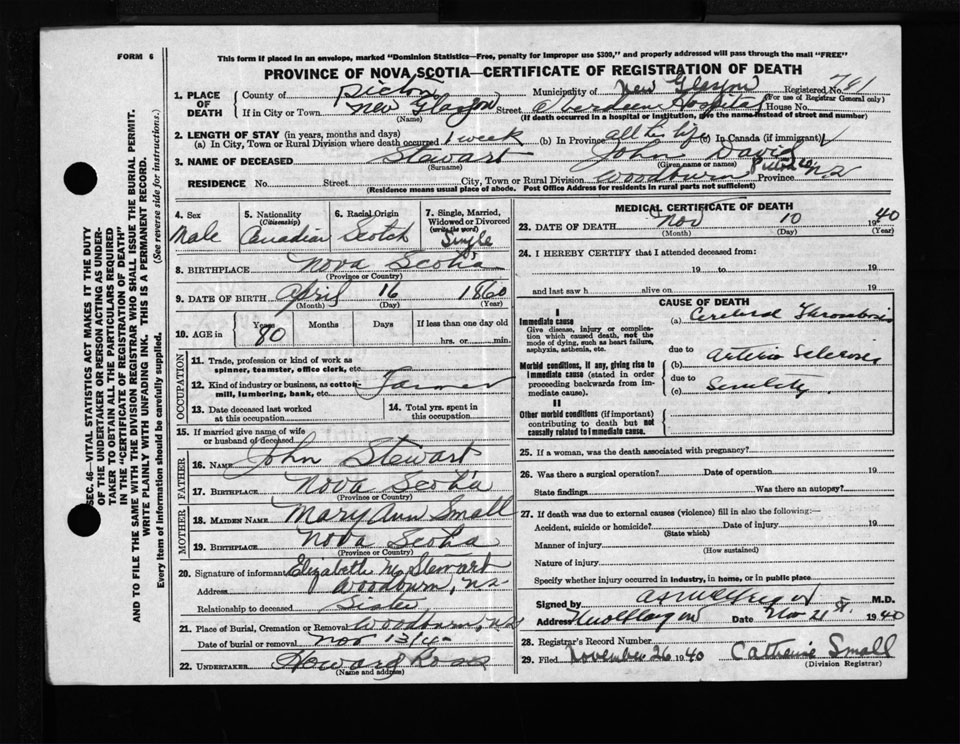 FORM 6
This form if placed in an envelope, marked "Dominion Statistics—Free, penalty for improper use $300," and properly addressed will pass through the mail "FREE"
PROVINCE OF NOVA SCOTIA—CERTIFICATE OF REGISTRATION OF DEATH
1. PLACE OF DEATH
County of Pictou Municipality of New Glasgow Registered No. 761
(For use of Registrar General only)
If in City or Town New Glasgow Street Aberdeen Hospital House No.
(Name) (If death occurred in a hospital or institution, give the name instead of street and number)
2. LENGTH OF STAY (in years, months and days)
(a) In City, Town or Rural Division where death occurred 1 week (b) In Province all his life (c) In Canada (if immigrant)
3. NAME OF DECEASED Stewart John David
(Surname) (Given name or names)
RESIDENCE No. Street City, Town or Rural Division Woodburn Province Pictou Co. N.S
(Residence means usual place of abode. Post Office Address for residents in rural parts not sufficient)
SEC. 46—VITAL STATISTICS ACT MAKES IT THE DUTY
OF THE UNDERTAKER OR PERSON ACTING AS UNDER-
TAKER TO OBTAIN ALL THE PARTICULARS REQUIRED
IN THE "CERTIFICATE OF REGISTRATION OF DEATH"
AND TO FILE THE SAME WITH THE DIVISION REGISTRAR WHO SHALL ISSUE THE BURIAL PERMIT.
WRITE PLAINLY WITH UNFADING INK. THIS IS A PERMANENT RECORD.
Every item of information should be carefully supplied. (See reverse side for instructions.)
4. Sex
Male
5. Nationality
(Citizenship)
Canadian
6. Racial Origin
Scotch
7. Single, Married,
Widowed or Divorced
(write the word)
Single
8. BIRTHPLACE Nova Scotia
(Province or Country)
9. DATE OF BIRTH April 16 1860
(Month) (Day) (Year)
10. AGE in Years Months Days If less than one day old
80 hrs. or min.
OCCUPATION
11. Trade, profession or kind of work as
spinner, teamster, office clerk, etc.
12. Kind of industry or business, as cotton-
mill, lumbering, bank, etc. Farmer
13. Date deceased last worked
at this occupation
14. Total yrs. spent in
this occupation
15. If married give name of wife
or husband of deceased
FATHER
16. NAME John Stewart
17. BIRTHPLACE Nova Scotia
(Province or Country)
MOTHER
18. MAIDEN NAME Mary Ann Small
19. BIRTHPLACE Nova Scotia
(Province or Country)
20. Signature of informant Elizabeth Stewart
Address Woodburn, N.S
Relationship to deceased Sister
21. Place of Burial, Cremation or Removal Woodburn, N.S
Date of burial or removal Nov 13/40
22. UNDERTAKER Howard
(Name and address)
MEDICAL CERTIFICATE OF DEATH
23. DATE OF DEATH Nov 10 1940
(Month) (Day) (Year)
24. I HEREBY CERTIFY that I attended deceased from:
19 to 19
and last saw h alive on 19
CAUSE OF DEATH
I
Immediate cause
Give disease, injury or complica-
tion which caused death, not the
mode of dying, such as heart failure,
asphyxia, asthenia, etc.
(a) Cerebral Thrombosis
due to
Morbid conditions, if any, giving rise to
immediate cause (stated in order
proceeding backwards from im-
mediate cause).
(b) Arterio Sclerosis
due to
(c) Senility
II
Other morbid conditions (if important)
contributing to death but not
causally related to immediate cause.
25. If a woman, was the death associated with pregnancy?
26. Was there a surgical operation? Date of operation 19
State findings Was there an autopsy?
27. If death was due to external causes (violence) fill in also the following:—
Accident, suicide or homicide? Date of injury 19
(State which)
Manner of injury
(How sustained)
Nature of injury
Specify whether injury occurred in industry, in home, or in public place
Signed by M.D.
Address New Glasgow Date Nov 21 1940
28. Registrar's Record Number
29. Filed November 26 1940 Catherine Small
(Division Registrar)